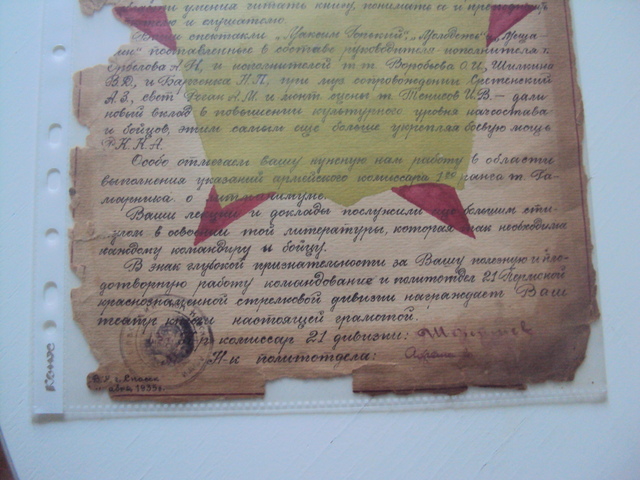 умения читать книгу, понимать ее и
и слушателю.
Ваши спектакли „Максим Горький", „Молодость",
поставленные в составе руководителя-исполнителя т.
А.Н. и исполнителей т.т. Воробьева О.И., Шилкина
В.Д. и П.П., при муз. сопровождении Сретенский
А.З., свет А.М. и монт. сцены т. Денисов И.В. — дали
новый вклад в повышении культурного уровня начсостава
и бойцов, этим самым еще больше укрепляя боевую мощь
Р.К.К.А.
Особо отмечаем вашу нужную нам работу в области
выполнения указаний армейского комиссара 1го ранга т. Га-
марника о
Ваши лекции и доклады послужили еще большим сти-
мулом в освоении той литературы, которая так необходима
каждому командиру и бойцу.
В знак глубокой признательности за Вашу полезную и пло-
дотворную работу командование и политотдел 21 Пермской
краснознаменной стрелковой дивизии награждает Ваш
театр книги настоящей грамотой.
комиссар 21 дивизии:
Н-к политотдела: